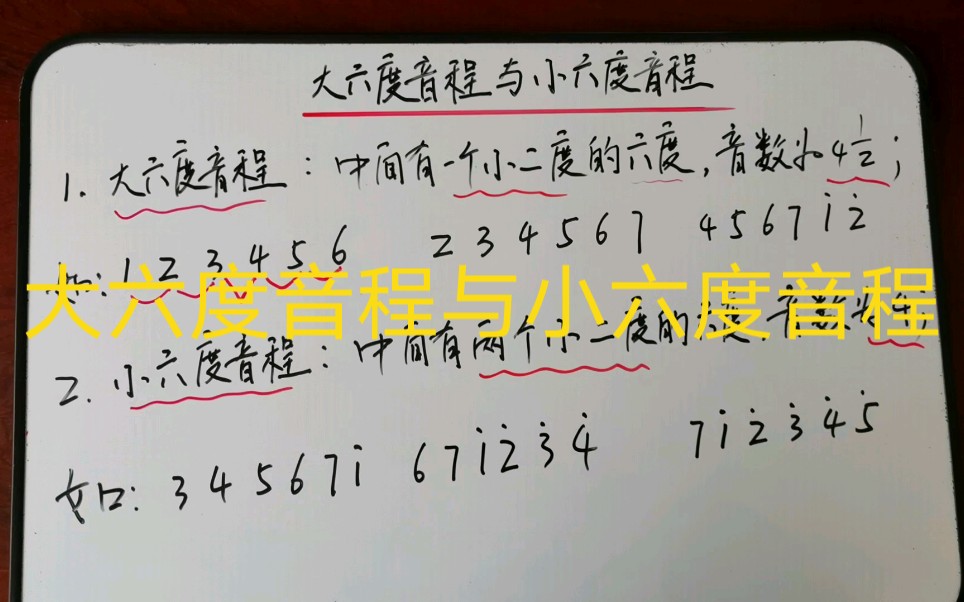 大六度音程与小六度音程
1. 大六度音程：中间有一个小二度的六度，音数为4½；
如: 1 2 3 4 5 6 2 3 4 5 6 7 4 5 6 7 i 2̇
大六度音程与小六度音程
2. 小六度音程：中间有两个小二度的
如: 3 4 5 6 7 i 6 7 i 2̇ 3̇ 4̇ 7 i 2̇ 3̇ 4̇ 5̇